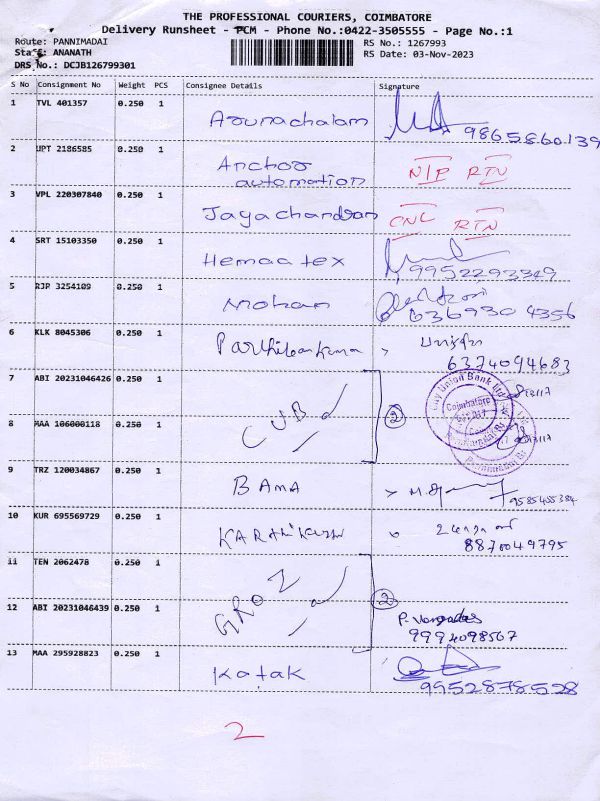 THE PROFESSIONAL COURIERS, COIMBATORE
Delivery Runsheet - PCM - Phone No.:0422-3505555 - Page No.:1
Route: PANNIMADAI
RS No.: 1267993
Staff: ANANATH
RS Date: 03-Nov-2023
DRS No.: DCJB126799301
S No Consignment No Weight PCS Consignee Details Signature
1 TVL 401357 0.250 1 Arunachalam 9865860139
2 UPT 2186585 0.250 1 Anchor automation N/P RTN
3 VPL 220307840 0.250 1 Jayachandran CNL RTN
4 SRT 15103350 0.250 1 Hemaatex 9952293349
5 RJP 3254109 0.250 1 Mohan 6369304356
6 KLK 8045306 0.250 1 Parthibankumar 6374094683
7 ABI 20231046426 0.250 1
8 MAA 106000118 0.250 1 CUB 2
City Union Bank Ltd
Coimbatore
9 TRZ 120034867 0.250 1 BAMA 9585455384
10 KUR 695569729 0.250 1 8870049795
11 TEN 2062478 0.250 1
12 ABI 20231046439 0.250 1 GROZ 2 9994098567
13 MAA 295928823 0.250 1 Katak 9952878528
2